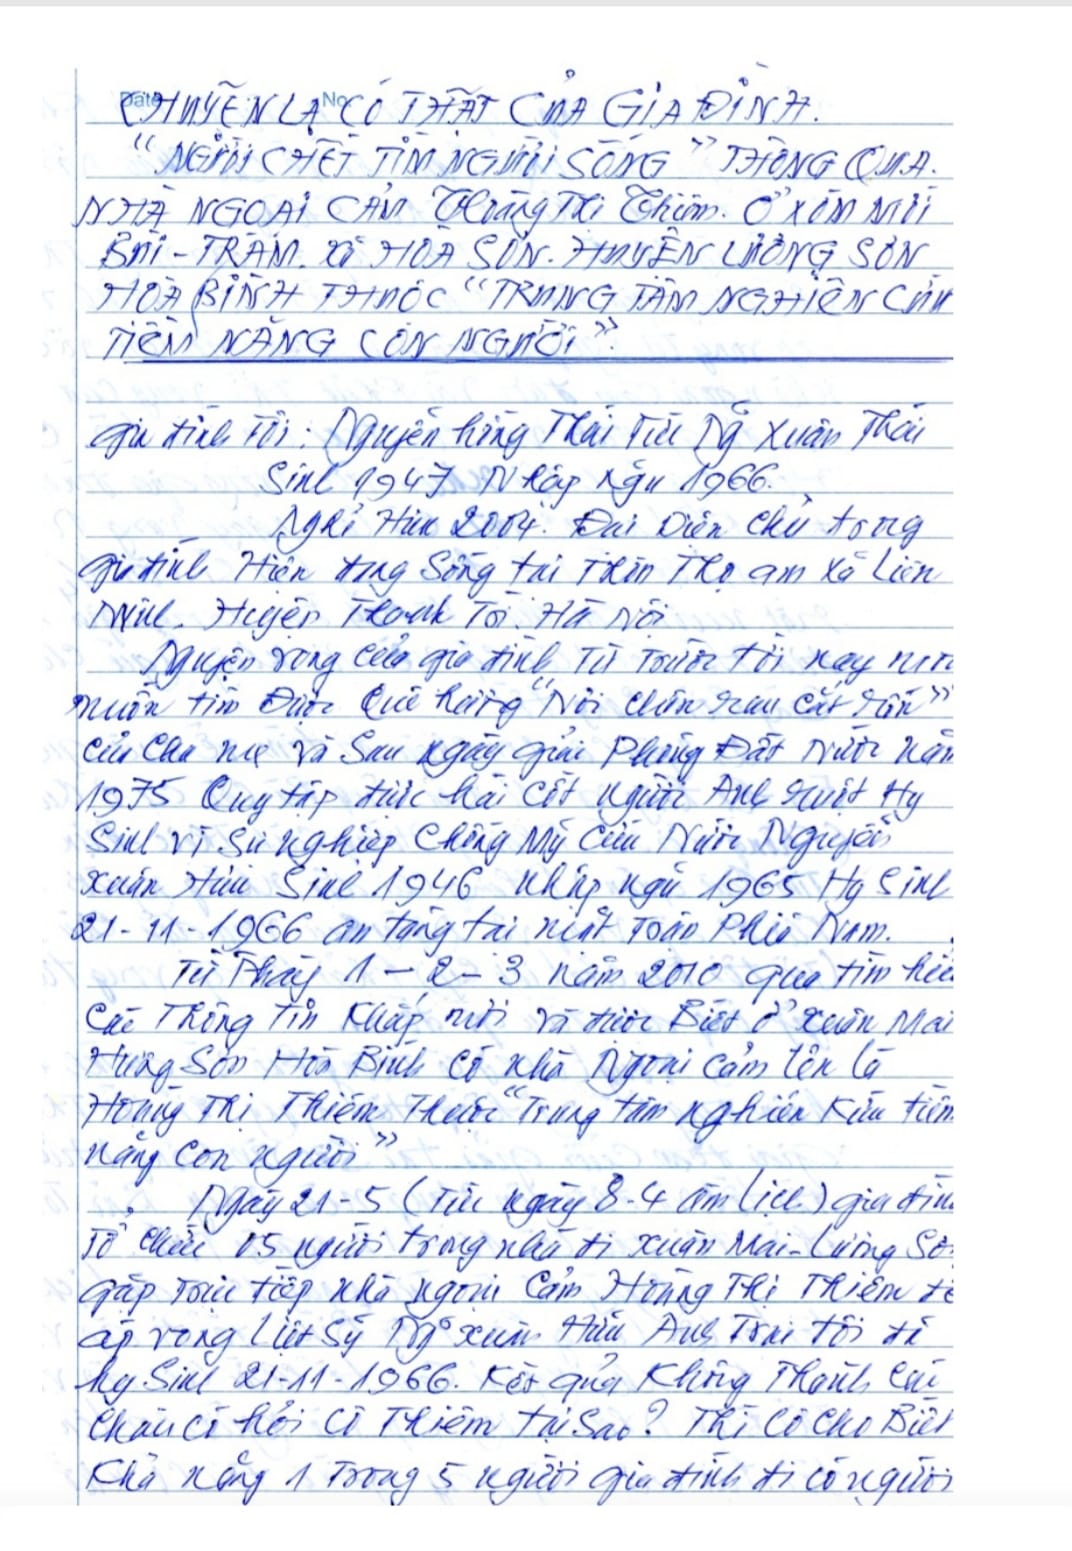 Date No
CHUYỆN LẠ CÓ THẬT CỦA GIA ĐÌNH.
"NGƯỜI CHẾT TÌM NGƯỜI SỐNG" THÔNG QUA.
NHÀ NGOẠI CẢM Hoàng Thị Thiêm. Ở XÓM MỚI
BÙI - TRÁM. XÃ HOÀ SƠN. HUYỆN LƯƠNG SƠN
HOÀ BÌNH THUỘC "TRUNG TÂM NGHIÊN CỨU
TIỀM NĂNG CON NGƯỜI".
gia đình Tôi: Nguyễn hồng Thái Tức Ng Xuân Thái
Sinh 1947 Nhập ngũ 1966.
Nghỉ Hưu 2004. Đại Diện Chủ trong
gia đình Hiện đang Sống tại Thôn Thọ am Xã Liên
Ninh. Huyện Thanh Trì. Hà Nội
Nguyện vọng của gia đình Từ Trước tới nay mon
muốn tìm Được Quê hương "Nơi Chôn rau Cắt rốn"
của Cha mẹ và Sau ngày giải Phóng Đất Nước năm
1975 Quy tập được hài Cốt người Anh ruột Hy
Sinh vì Sự nghiệp Chống Mỹ Cứu Nước Nguyễn
Xuân Hữu Sinh 1946 nhập ngũ 1965 Hy Sinh
21-11-1966 an táng tại mặt Trận Phía Nam.
Từ Tháng 1-2-3 năm 2010 qua tìm hiểu
Các Thông Tin Khắp nơi và được Biết ở Xuân Mai
Lương Sơn Hòa Bình Có nhà Ngoại Cảm tên là
Hoàng Thị Thiêm Thuộc "Trung tâm nghiên Kứu tiềm
năng Con người"
Ngày 21-5 (Tức ngày 8-4 âm lịch) gia đình
Tổ Chức 05 người trong nhà đi Xuân Mai - Lương Sơn
gặp Trực tiếp nhà ngoại Cảm Hoàng Thị Thiêm để
áp vong Liệt Sỹ Ng Xuân Hữu Anh Trai tôi đã
hy Sinh 21-11-1966. Kết quả Không Thành Các
Cháu Có hỏi Cô Thiêm tại Sao? Thì Cô Cho Biết
Khả năng 1 Trong 5 người gia đình đi có người